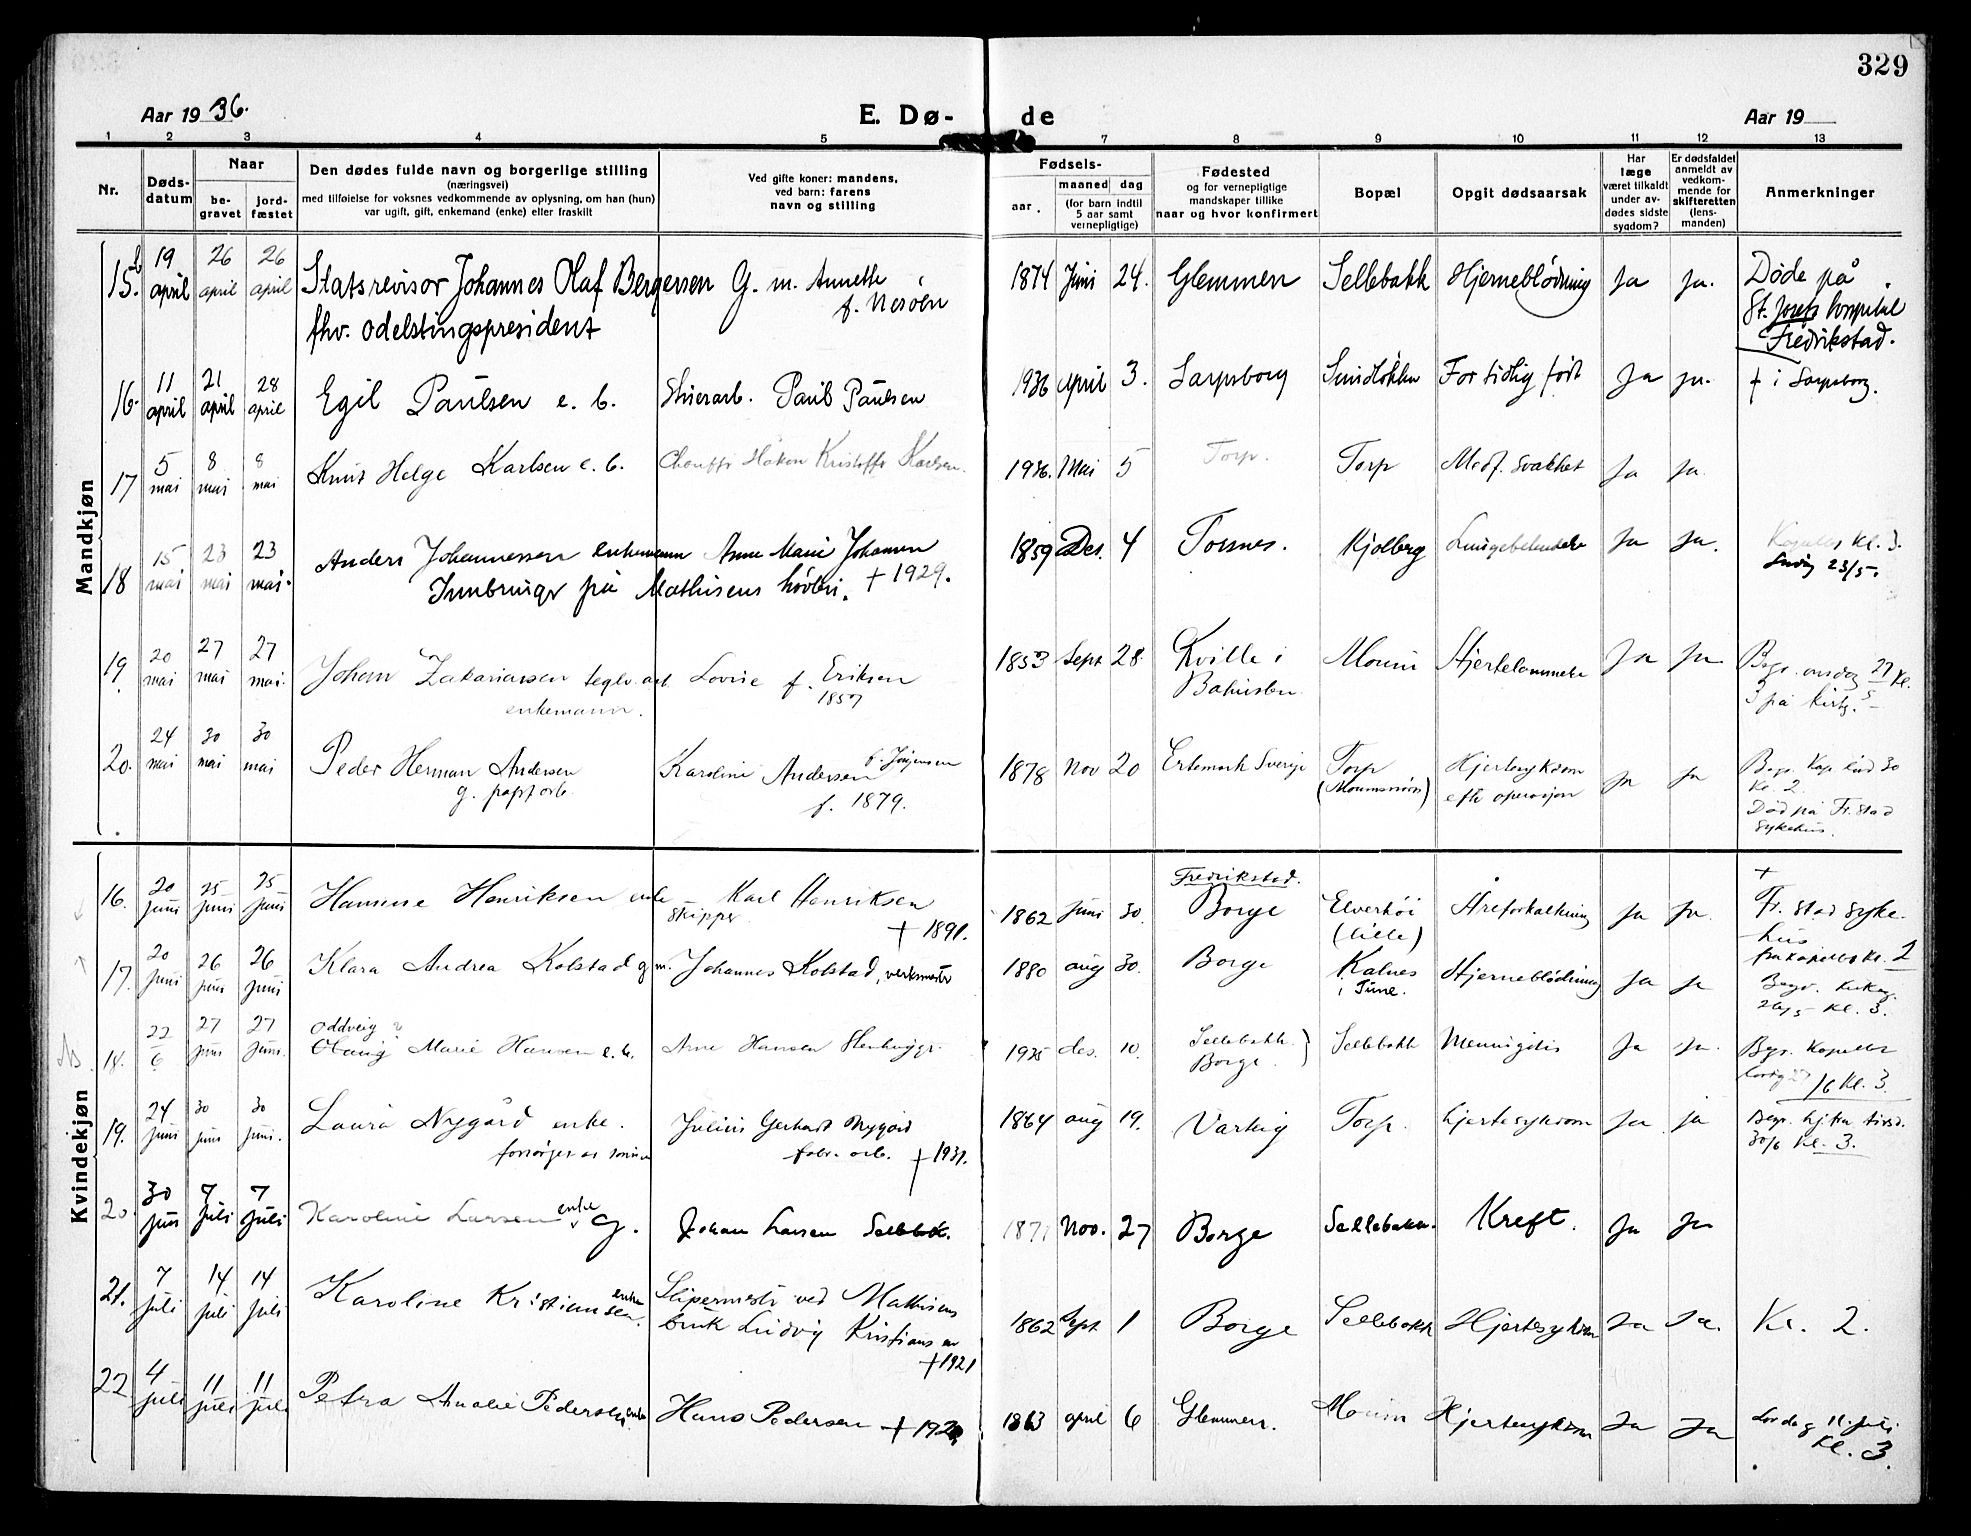 329
Aar 1936.
E. Dø-
de
Aar 19
1 2 3 4 5 7 8 9 10 11 12 13
Nr.
Døds-
datum
Naar
be-
gravet
jord-
fæstet
Den dødes fulde navn og borgerlige stilling
(næringsvei)
med tilføielse for voksnes vedkommende av oplysning, om han (hun)
var ugift, gift, enkemand (enke) eller fraskilt
Ved gifte koner: mandens,
ved barn: farens
navn og stilling
Fødsels-
aar.
maaned dag
(for barn indtil
5 aar samt
vernepligtige)
Fødested
og for vernepligtige
mandskaper tillike
naar og hvor konfirmert
Bopæl
Opgit dødsaarsak
Har
læge
været tilkaldt
under av-
dødes sidste
sygdom?
Er dødsfaldet
anmeldt av
vedkom-
mende for
skifteretten
(lens-
manden)
Anmerkninger
Mandkjøn
15b. 19 april 26 april 26 april Statsrevisor Johannes Olaf Bergersen G. m. Annette 1874 Juni 24. Glemmen Sellebakk Hjerneblödning Ja ja. Döde på
f. Nesöen
fhv. odelstingspresident
St. Josefs hospital
Fredrikstad.
16. 11 april 21 april 28 april Egil Paulsen e. b. Paul Paulsen 1936 april 3. Sarpsborg For tidlig født Ja ja. † i Sarpsborg.
17 5 mai 8 mai 8 mai Knut Helge Karlsen e. b. Håkon Kristoffer Karlsen. 1936. Mai 5 Torp. Torp Medf. svakhet Ja Ja.
18 15 mai 23 mai 23 mai. Anders Johannessen enkemann Anne Marie Johansen 1859 Des. 4 Torsnes. Kjølberg Ja Ja. Kapellet kl. 3.
på Mathisens høvleri. † 1929.
23/5.
19. 20 mai 27 mai 27 mai. Johan Zakariassen teglv. arb. Lovise f. Eriksen 1853 Sept 28. Kville i Moum Hjertelammelse Ja Ja Begr. onsdag 27/5 kl.
enkemann. 1857
Bahuslen
3 på kirkg.
20. 24 mai 30 mai 30 mai Peder Herman Andersen Karoline Andersen f. Jörgensen 1878 Nov 20 Ertemark Sverige Torp Hjertesykdom Ja Ja Begr. Kap. lörd 30
g. papf arb.
f. 1879.
efter operasjon
Kl. 2.
Död på Fr.stad
sykehus.
Kvindekjøn
16. 20 juni 25 juni 25 juni Hanne Henriksen enke Karl Henriksen 1862 Juni 30. Borge Elverhöi Åreforkalkning Ja Ja. † Fr.stad syke-
skipper
† 1891.
Fredrikstad.
(Lille)
hus
fra kapellet kl. 2
17. 20 juni 26 juni 26 juni Klara Andrea Kolstad g. m. Johannes Kolstad, verksmester 1880 aug 30. Borge Kalnes Hjerneblödning Ja Ja
i Tune.
Kl. 3.
18. 22/6 27 juni 27 juni. Oddveig Marie Hansen e. b. Arne Hansen 1935 des. 10. Sellebakk Sellebakk Meningitis Ja Ja. Begr. Kapellet
Borge.
Kl. 3.
19. 24 juni 30 juni 30 juni. Laura Nygård enke. Julius Gerhard Nygård 1864 aug 19. Varteig Torp. Hjertesykdom Ja ja
forsörges av
fabr. arb. † 1931.
30/6 Kl. 3.
20. 30 juni 7 juli 7 juli Karoline Larsen enke g. Johan Larsen Sellebk. 1871 Nov. 27 Borge Sellebakk. Kreft. Ja Ja
21. 7 juli 14 juli 14 juli Karoline Kristiansen. enke Slipermestr ved Mathisens 1862 Sept 1 Borge Sellebakk Hjertesykdom Ja Ja. Kl. 2.
bruk Ludvig Kristiansen
† 1921
22 4 juli 11 juli 11 juli Petra Amalie Pedersen enke Hans Pedersen † 1863 april 6 Glemmen. Moum Hjertesykdom Ja Ja Lördag 11. juli
Kl. 3.